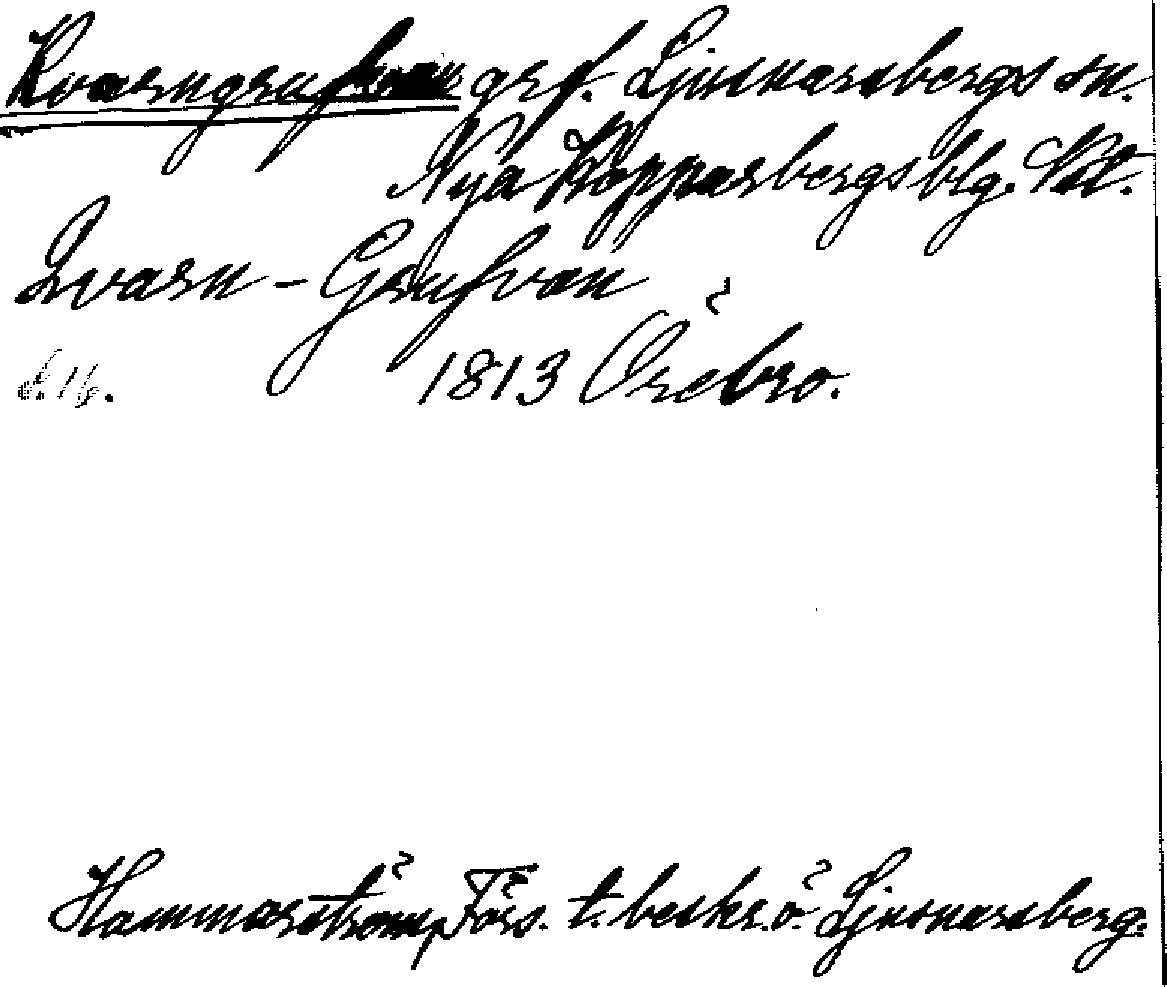 Kvarngrufvan grf. Ljusnarsbergs sn.
Nya Kopparbergs blg. Vstl.
Qvarn-Grufvan
s. 16. 1813 Örebro.
Hammarström, Förs. t. beskr. ö. Ljusnarsberg.